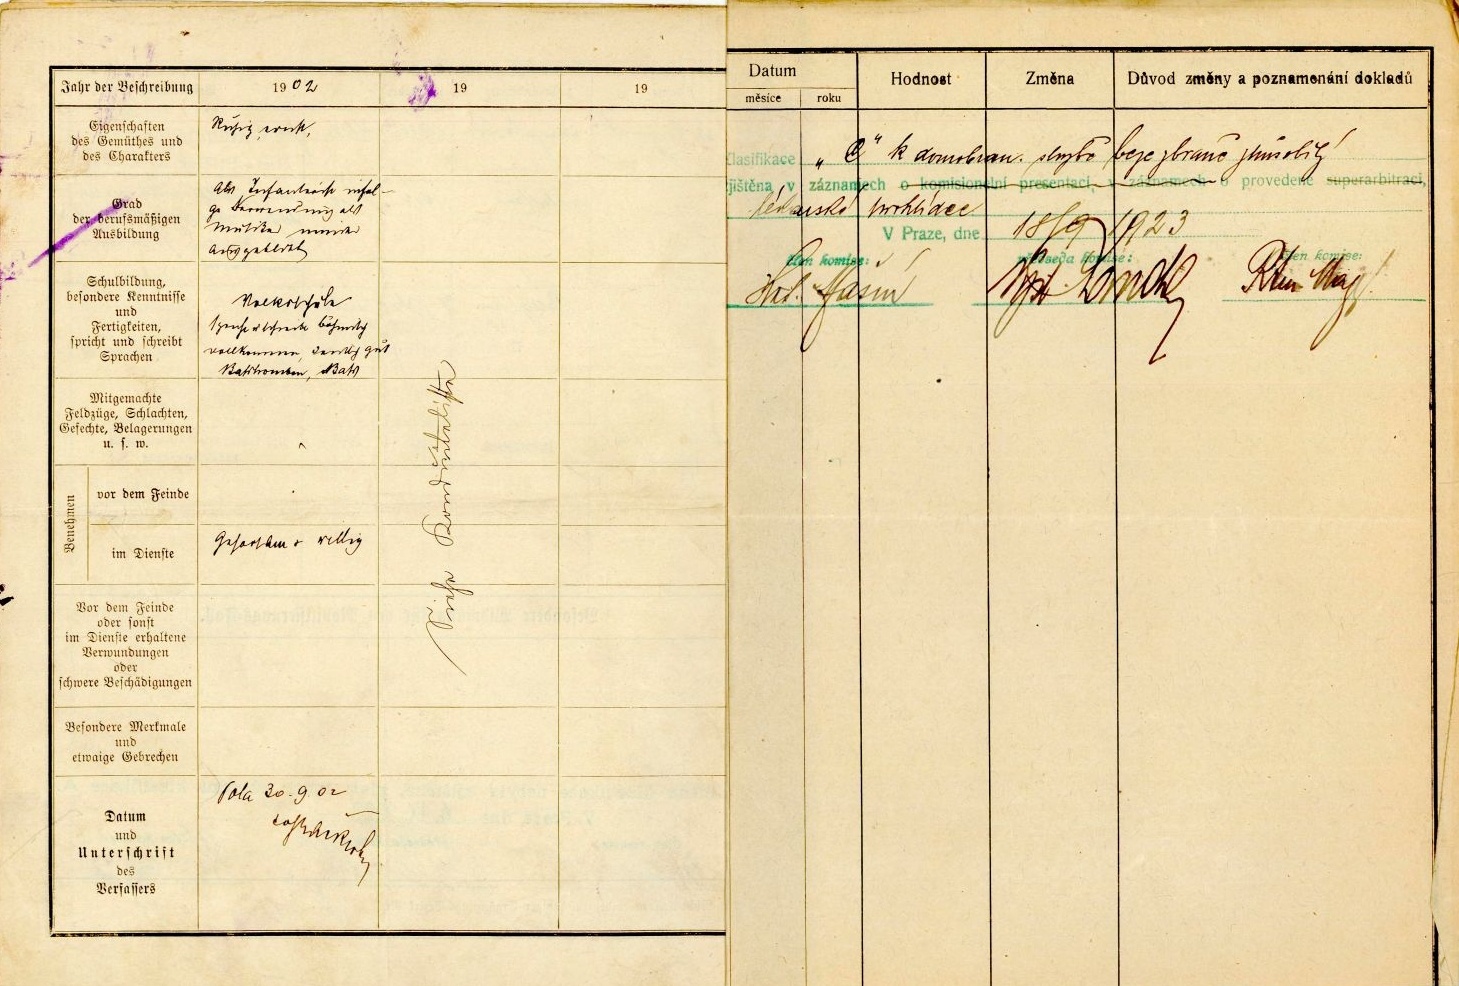 Jahr der Beschreibung
1902
19
19
Eigenschaften
des Gemüthes und
des Charakters
Ruhig, ernst,
Grad
der berufsmäßigen
Ausbildung
Als Infanterist infol-
ge Verwendung als
Musiker minder
ausgebildet
Schulbildung,
besondere Kenntnisse
und
Fertigkeiten,
spricht und schreibt
Sprachen
Volksschule
böhmisch
vollkommen, deutsch gut
Mitgemachte
Feldzüge, Schlachten,
Gefechte, Belagerungen
u. s. w.
Benehmen
vor dem Feinde
im Dienste
Gehorsam u willig
Siehe Konduiteliste
Vor dem Feinde
oder sonst
im Dienste erhaltene
Verwundungen
oder
schwere Beschädigungen
Besondere Merkmale
und
etwaige Gebrechen
Datum
und
Unterschrift
des
Verfassers
Pola 30.9.02
Datum
měsíce
roku
Hodnost
Změna
Důvod změny a poznamenání dokladů
klasifikace „C" k domobran. službě beze zbraně způsobilý
zjištěna v záznamech o komisionelní presentaci, v záznamech o provedené superarbitraci,
lékařské prohlídce
V Praze, dne 18/9 1923
člen komise:
předseda komise:
člen komise: